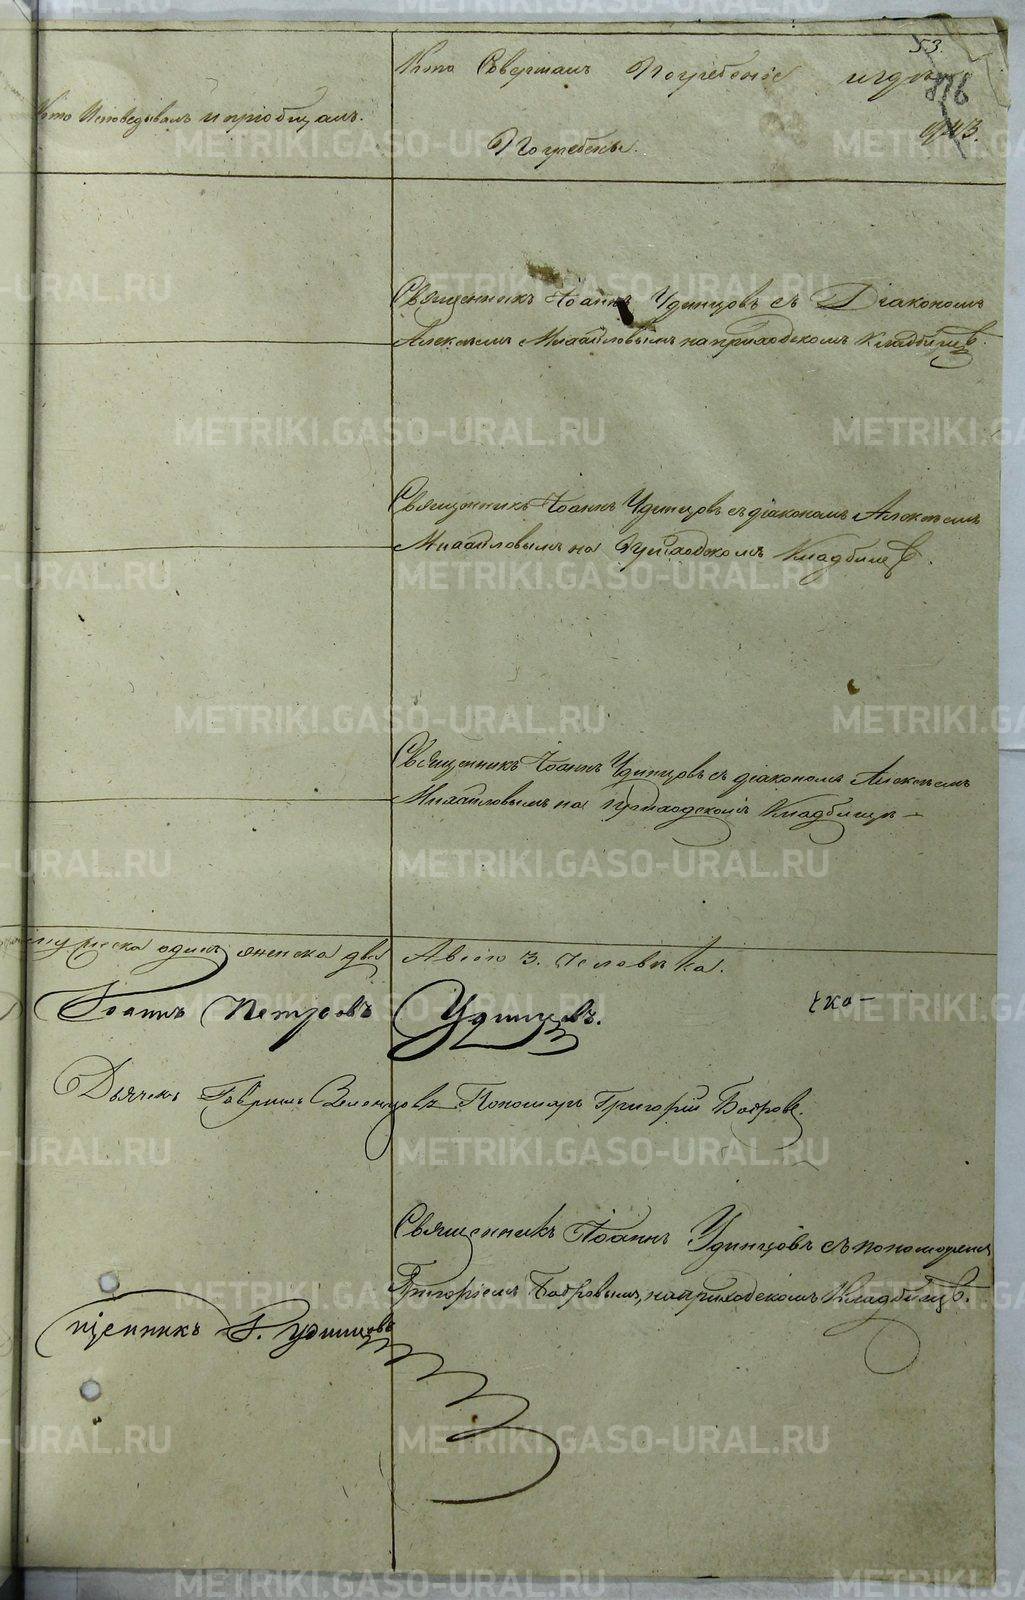 53.
Кто Совершалъ Погребенiе и гдѣ
Кто Исповѣдывалъ и прiобщалъ.
Погребены.
Священникъ Iоаннъ Удинцовъ съ Дiакономъ
Алексѣемъ Михайловымъ на приходскомъ Кладбищѣ.
Священникъ Iоаннъ Удинцовъ съ дiакономъ Алексѣемъ
Михайловымъ на Приходскомъ Кладбищѣ.
Священникъ Iоаннъ Удинцовъ съ дiакономъ Алексѣемъ
Михайловымъ на приходскомъ Кладбищѣ
мужеска одинъ женска два А всего 3. человѣка.
Iоаннъ Петровъ Удинцовъ.
Дьячекъ Гаврiилъ Зеленцовъ Пономарь Григорiй Бобровъ.
Священникъ Iоаннъ Удинцовъ съ пономаремъ
Григорiемъ Бобровымъ, на приходскомъ Кладбищѣ.
щенникъ I. Удинцовъ
METRIKI.GASO-URAL.RU